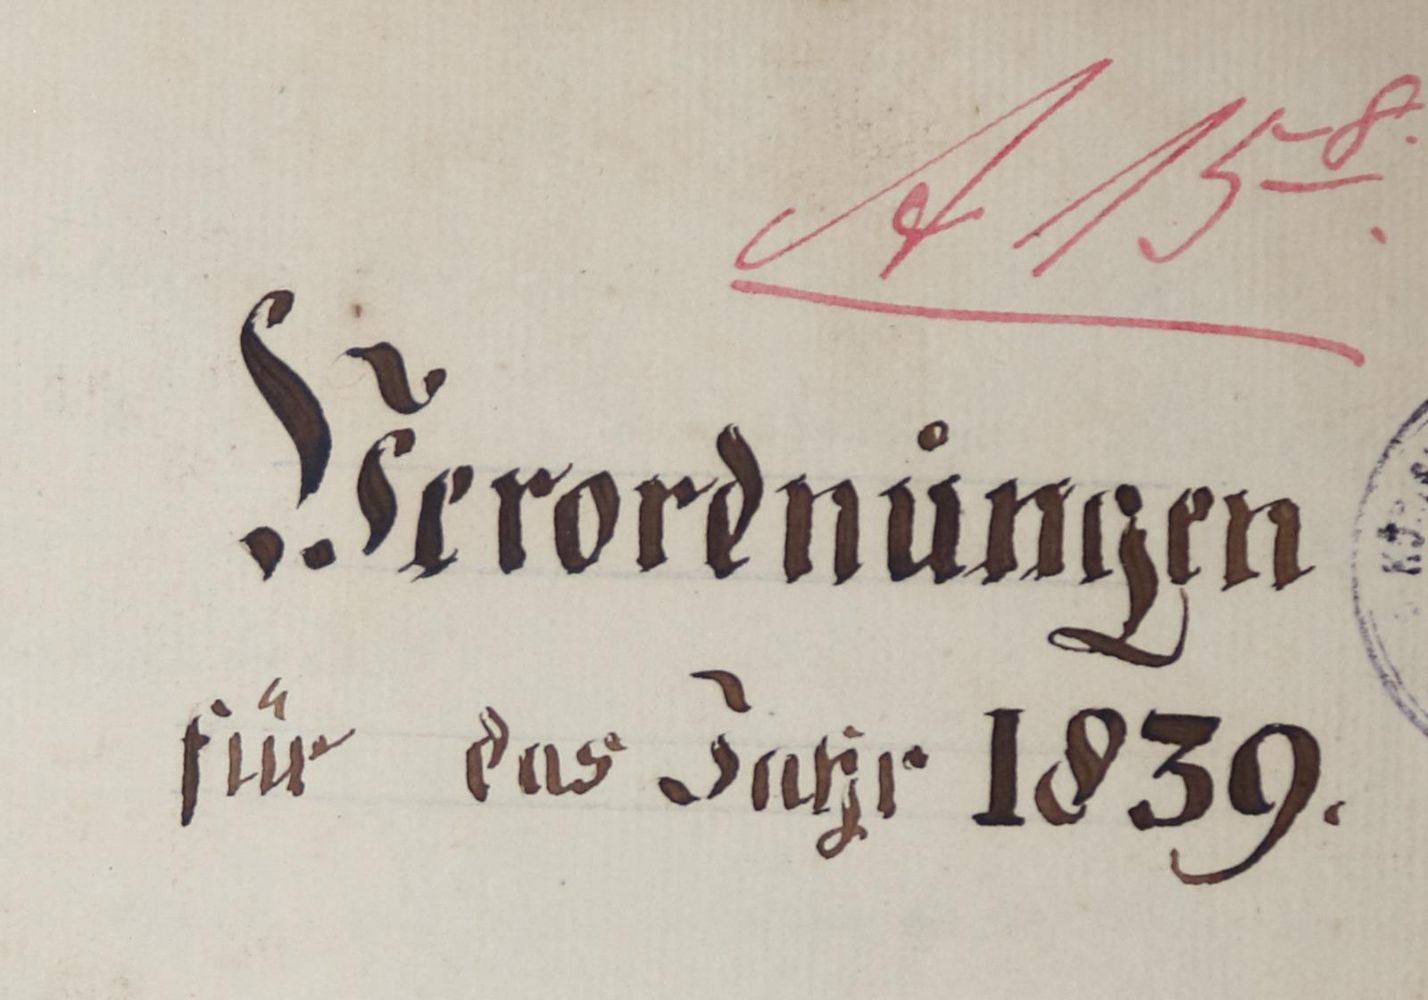 A 15 8.
Verordnungen
für das Jahr 1839.